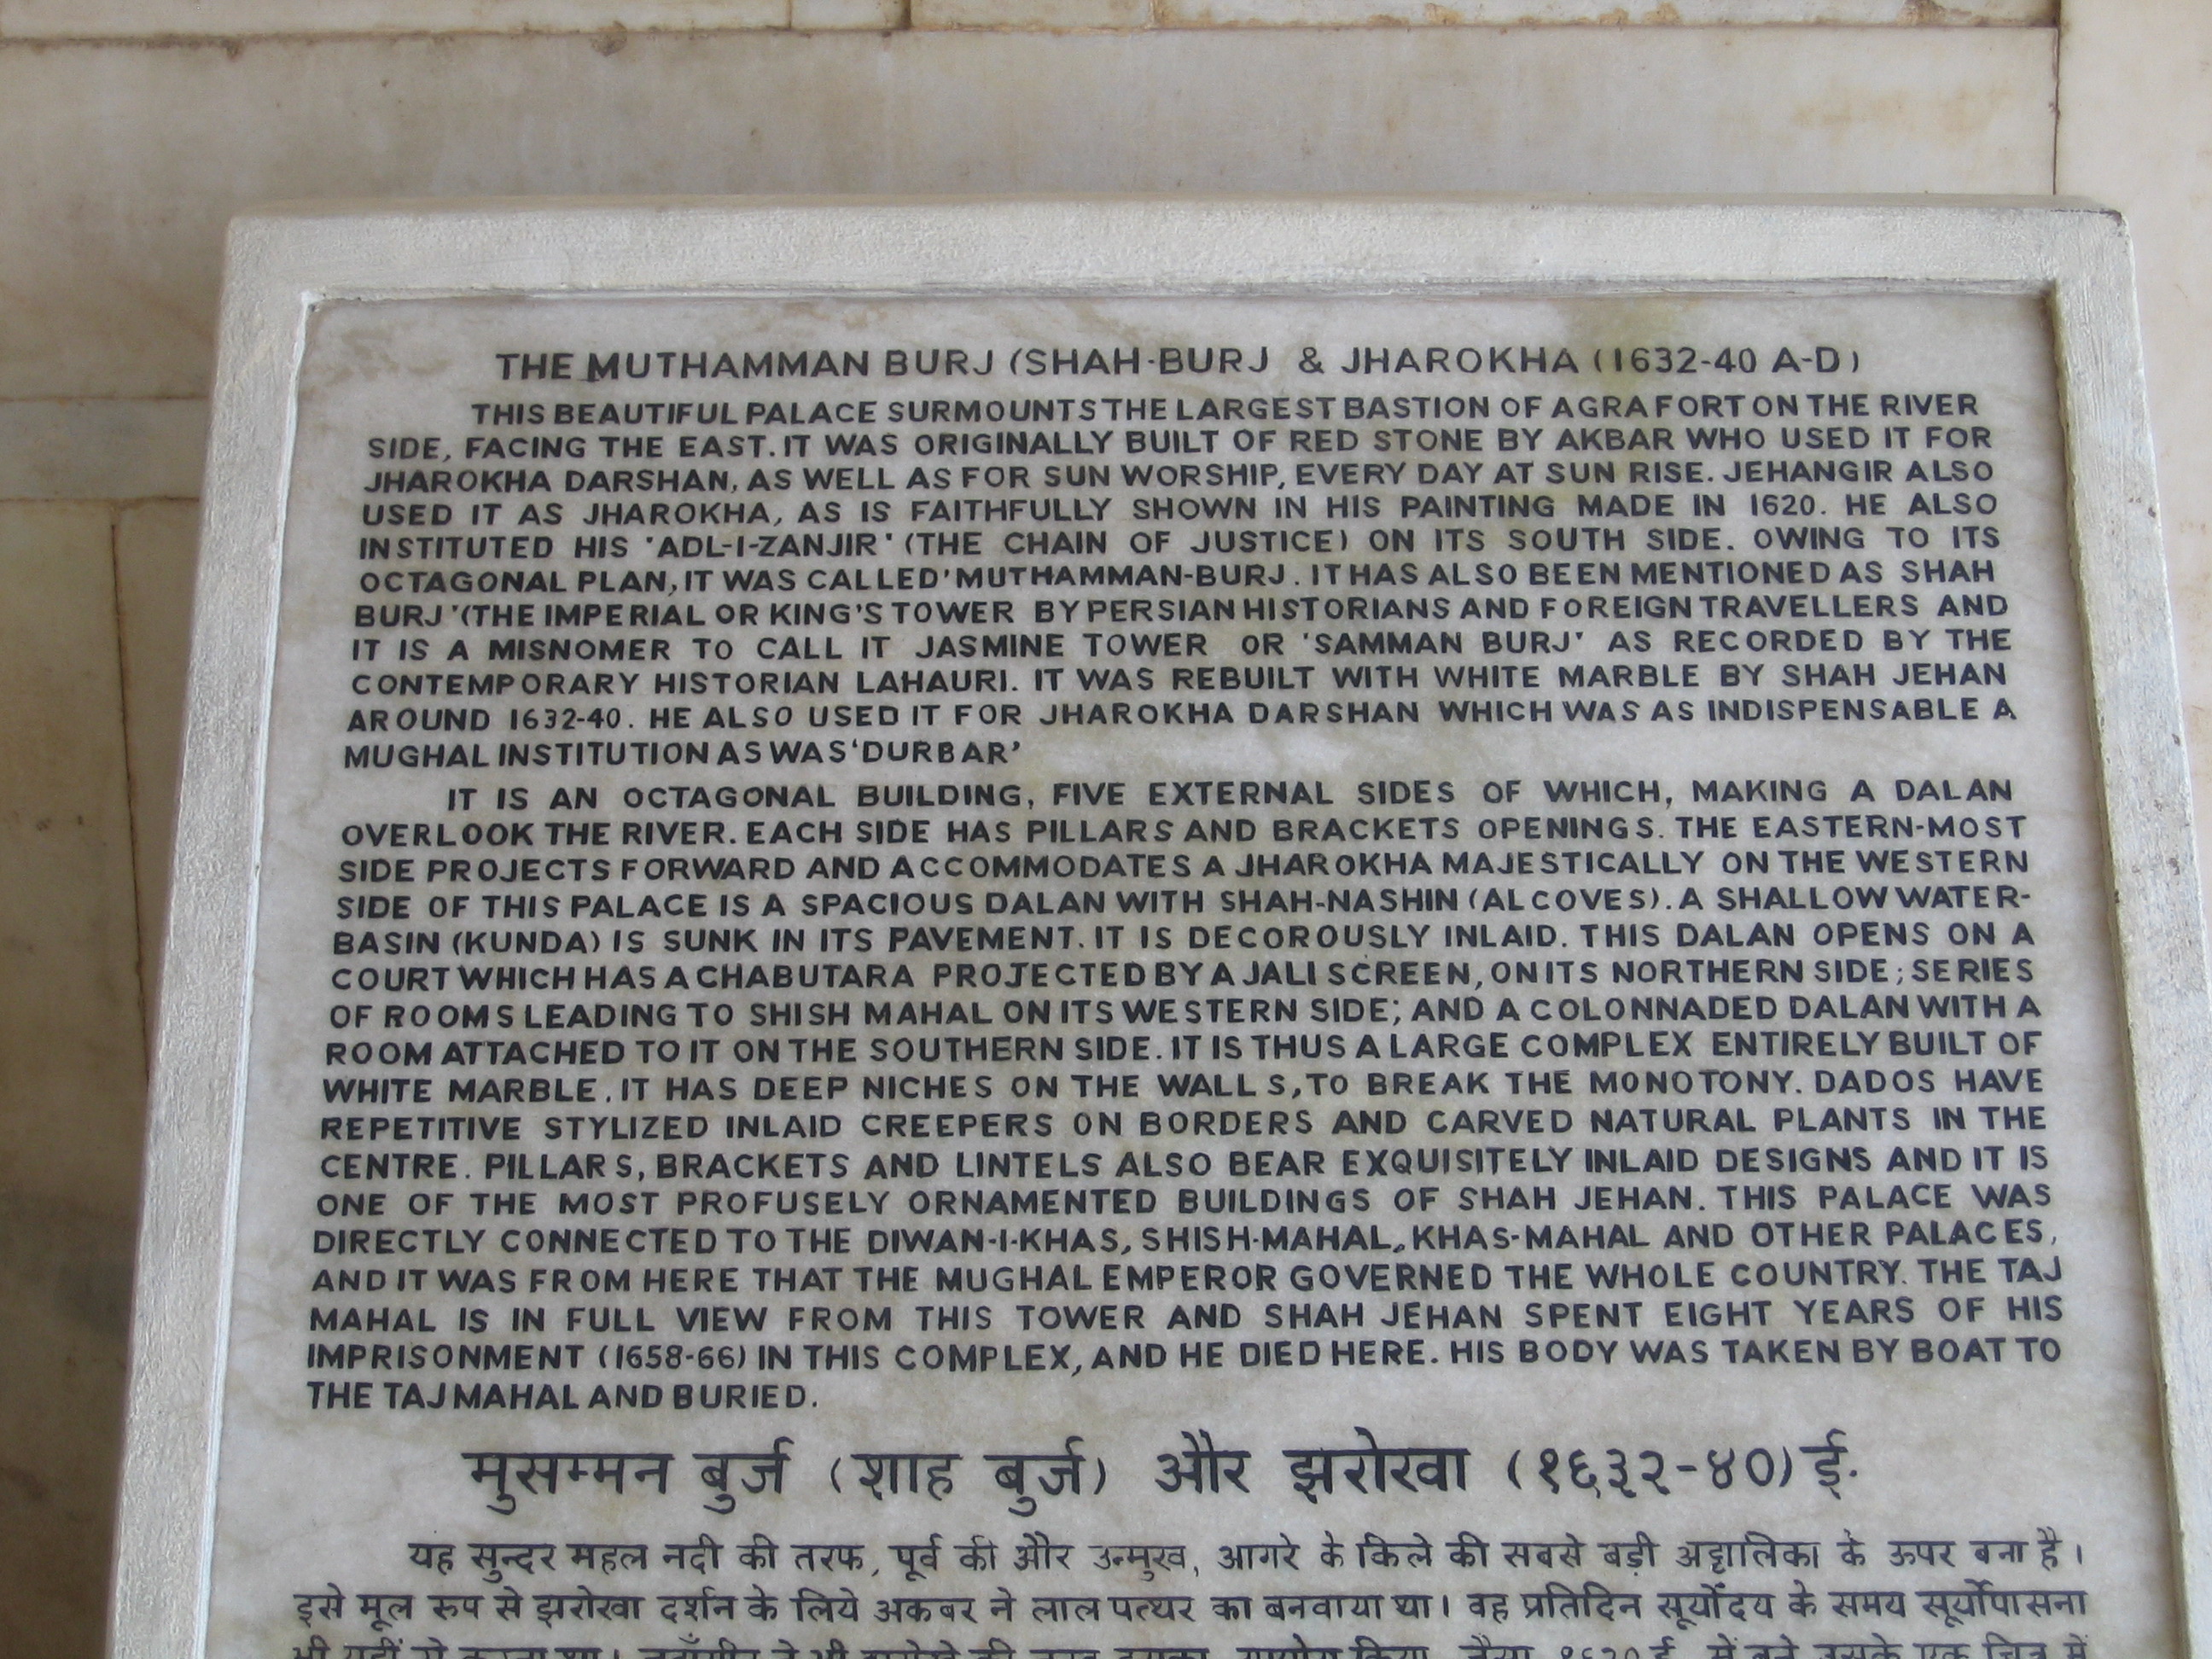 THE MUTHAMMAN BURJ (SHAH-BURJ & JHAROKHA (1632-40 A-D)
THIS BEAUTIFUL PALACE SURMOUNTS THE LARGEST BASTION OF AGRA FORT ON THE RIVER
SIDE, FACING THE EAST. IT WAS ORIGINALLY BUILT OF RED STONE BY AKBAR WHO USED IT FOR
JHAROKHA DARSHAN, AS WELL AS FOR SUN WORSHIP, EVERY DAY AT SUN RISE. JEHANGIR ALSO
USED IT AS JHAROKHA, AS IS FAITHFULLY SHOWN IN HIS PAINTING MADE IN 1620. HE ALSO
INSTITUTED HIS 'ADL-I-ZANJIR' (THE CHAIN OF JUSTICE) ON ITS SOUTH SIDE. OWING TO ITS
OCTAGONAL PLAN, IT WAS CALLED 'MUTHAMMAN-BURJ. IT HAS ALSO BEEN MENTIONED AS SHAH
BURJ '(THE IMPERIAL OR KING'S TOWER BY PERSIAN HISTORIANS AND FOREIGN TRAVELLERS AND
IT IS A MISNOMER TO CALL IT JASMINE TOWER OR 'SAMMAN BURJ' AS RECORDED BY THE
CONTEMPORARY HISTORIAN LAHAURI. IT WAS REBUILT WITH WHITE MARBLE BY SHAH JEHAN
AROUND 1632-40. HE ALSO USED IT FOR JHAROKHA DARSHAN WHICH WAS AS INDISPENSABLE A
MUGHAL INSTITUTION AS WAS 'DURBAR'
IT IS AN OCTAGONAL BUILDING, FIVE EXTERNAL SIDES OF WHICH, MAKING A DALAN
OVERLOOK THE RIVER. EACH SIDE HAS PILLARS AND BRACKETS OPENINGS. THE EASTERN-MOST
SIDE PROJECTS FORWARD AND ACCOMMODATES A JHAROKHA MAJESTICALLY ON THE WESTERN
SIDE OF THIS PALACE IS A SPACIOUS DALAN WITH SHAH-NASHIN (ALCOVES). A SHALLOW WATER-
BASIN (KUNDA) IS SUNK IN ITS PAVEMENT. IT IS DECOROUSLY INLAID. THIS DALAN OPENS ON A
COURT WHICH HAS A CHABUTARA PROJECTED BY A JALI SCREEN, ON ITS NORTHERN SIDE; SERIES
OF ROOMS LEADING TO SHISH MAHAL ON ITS WESTERN SIDE; AND A COLONNADED DALAN WITH A
ROOM ATTACHED TO IT ON THE SOUTHERN SIDE. IT IS THUS A LARGE COMPLEX ENTIRELY BUILT OF
WHITE MARBLE. IT HAS DEEP NICHES ON THE WALLS, TO BREAK THE MONOTONY. DADOS HAVE
REPETITIVE STYLIZED INLAID CREEPERS ON BORDERS AND CARVED NATURAL PLANTS IN THE
CENTRE. PILLARS, BRACKETS AND LINTELS ALSO BEAR EXQUISITELY INLAID DESIGNS AND IT IS
ONE OF THE MOST PROFUSELY ORNAMENTED BUILDINGS OF SHAH JEHAN. THIS PALACE WAS
DIRECTLY CONNECTED TO THE DIWAN-I-KHAS, SHISH-MAHAL, KHAS-MAHAL AND OTHER PALACES,
AND IT WAS FROM HERE THAT THE MUGHAL EMPEROR GOVERNED THE WHOLE COUNTRY. THE TAJ
MAHAL IS IN FULL VIEW FROM THIS TOWER AND SHAH JEHAN SPENT EIGHT YEARS OF HIS
IMPRISONMENT (1658-66) IN THIS COMPLEX, AND HE DIED HERE. HIS BODY WAS TAKEN BY BOAT TO
THE TAJ MAHAL AND BURIED.
मुसम्मन बुर्ज (शाह बुर्ज) और झरोखा (१६३२-४०) ई.
यह सुन्दर महल नदी की तरफ, पूर्व की और उन्मुख, आगरे के किले की सबसे बड़ी अट्टालिका के ऊपर बना है।
इसे मूल रुप से झरोखा दर्शन के लिये अकबर ने लाल पत्थर का बनवाया था। वह प्रतिदिन सूर्योदय के समय सूर्योपासना